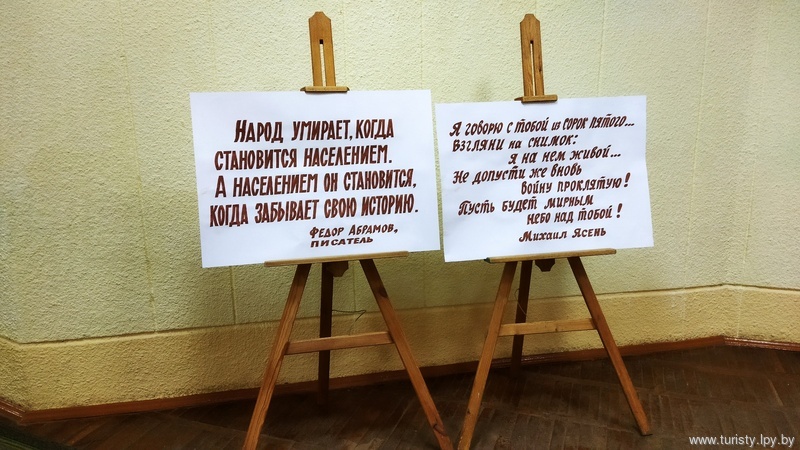 Народ умирает, когда
становится населением.
А населением он становится,
когда забывает свою историю.
Федор Абрамов,
писатель
Я говорю с тобой из сорок пятого...
Взгляни на снимок:
я на нем живой...
Не допусти же вновь
войну проклятую!
Пусть будет мирным
небо над тобой!
Михаил Ясень
www.turisty.lpy.by